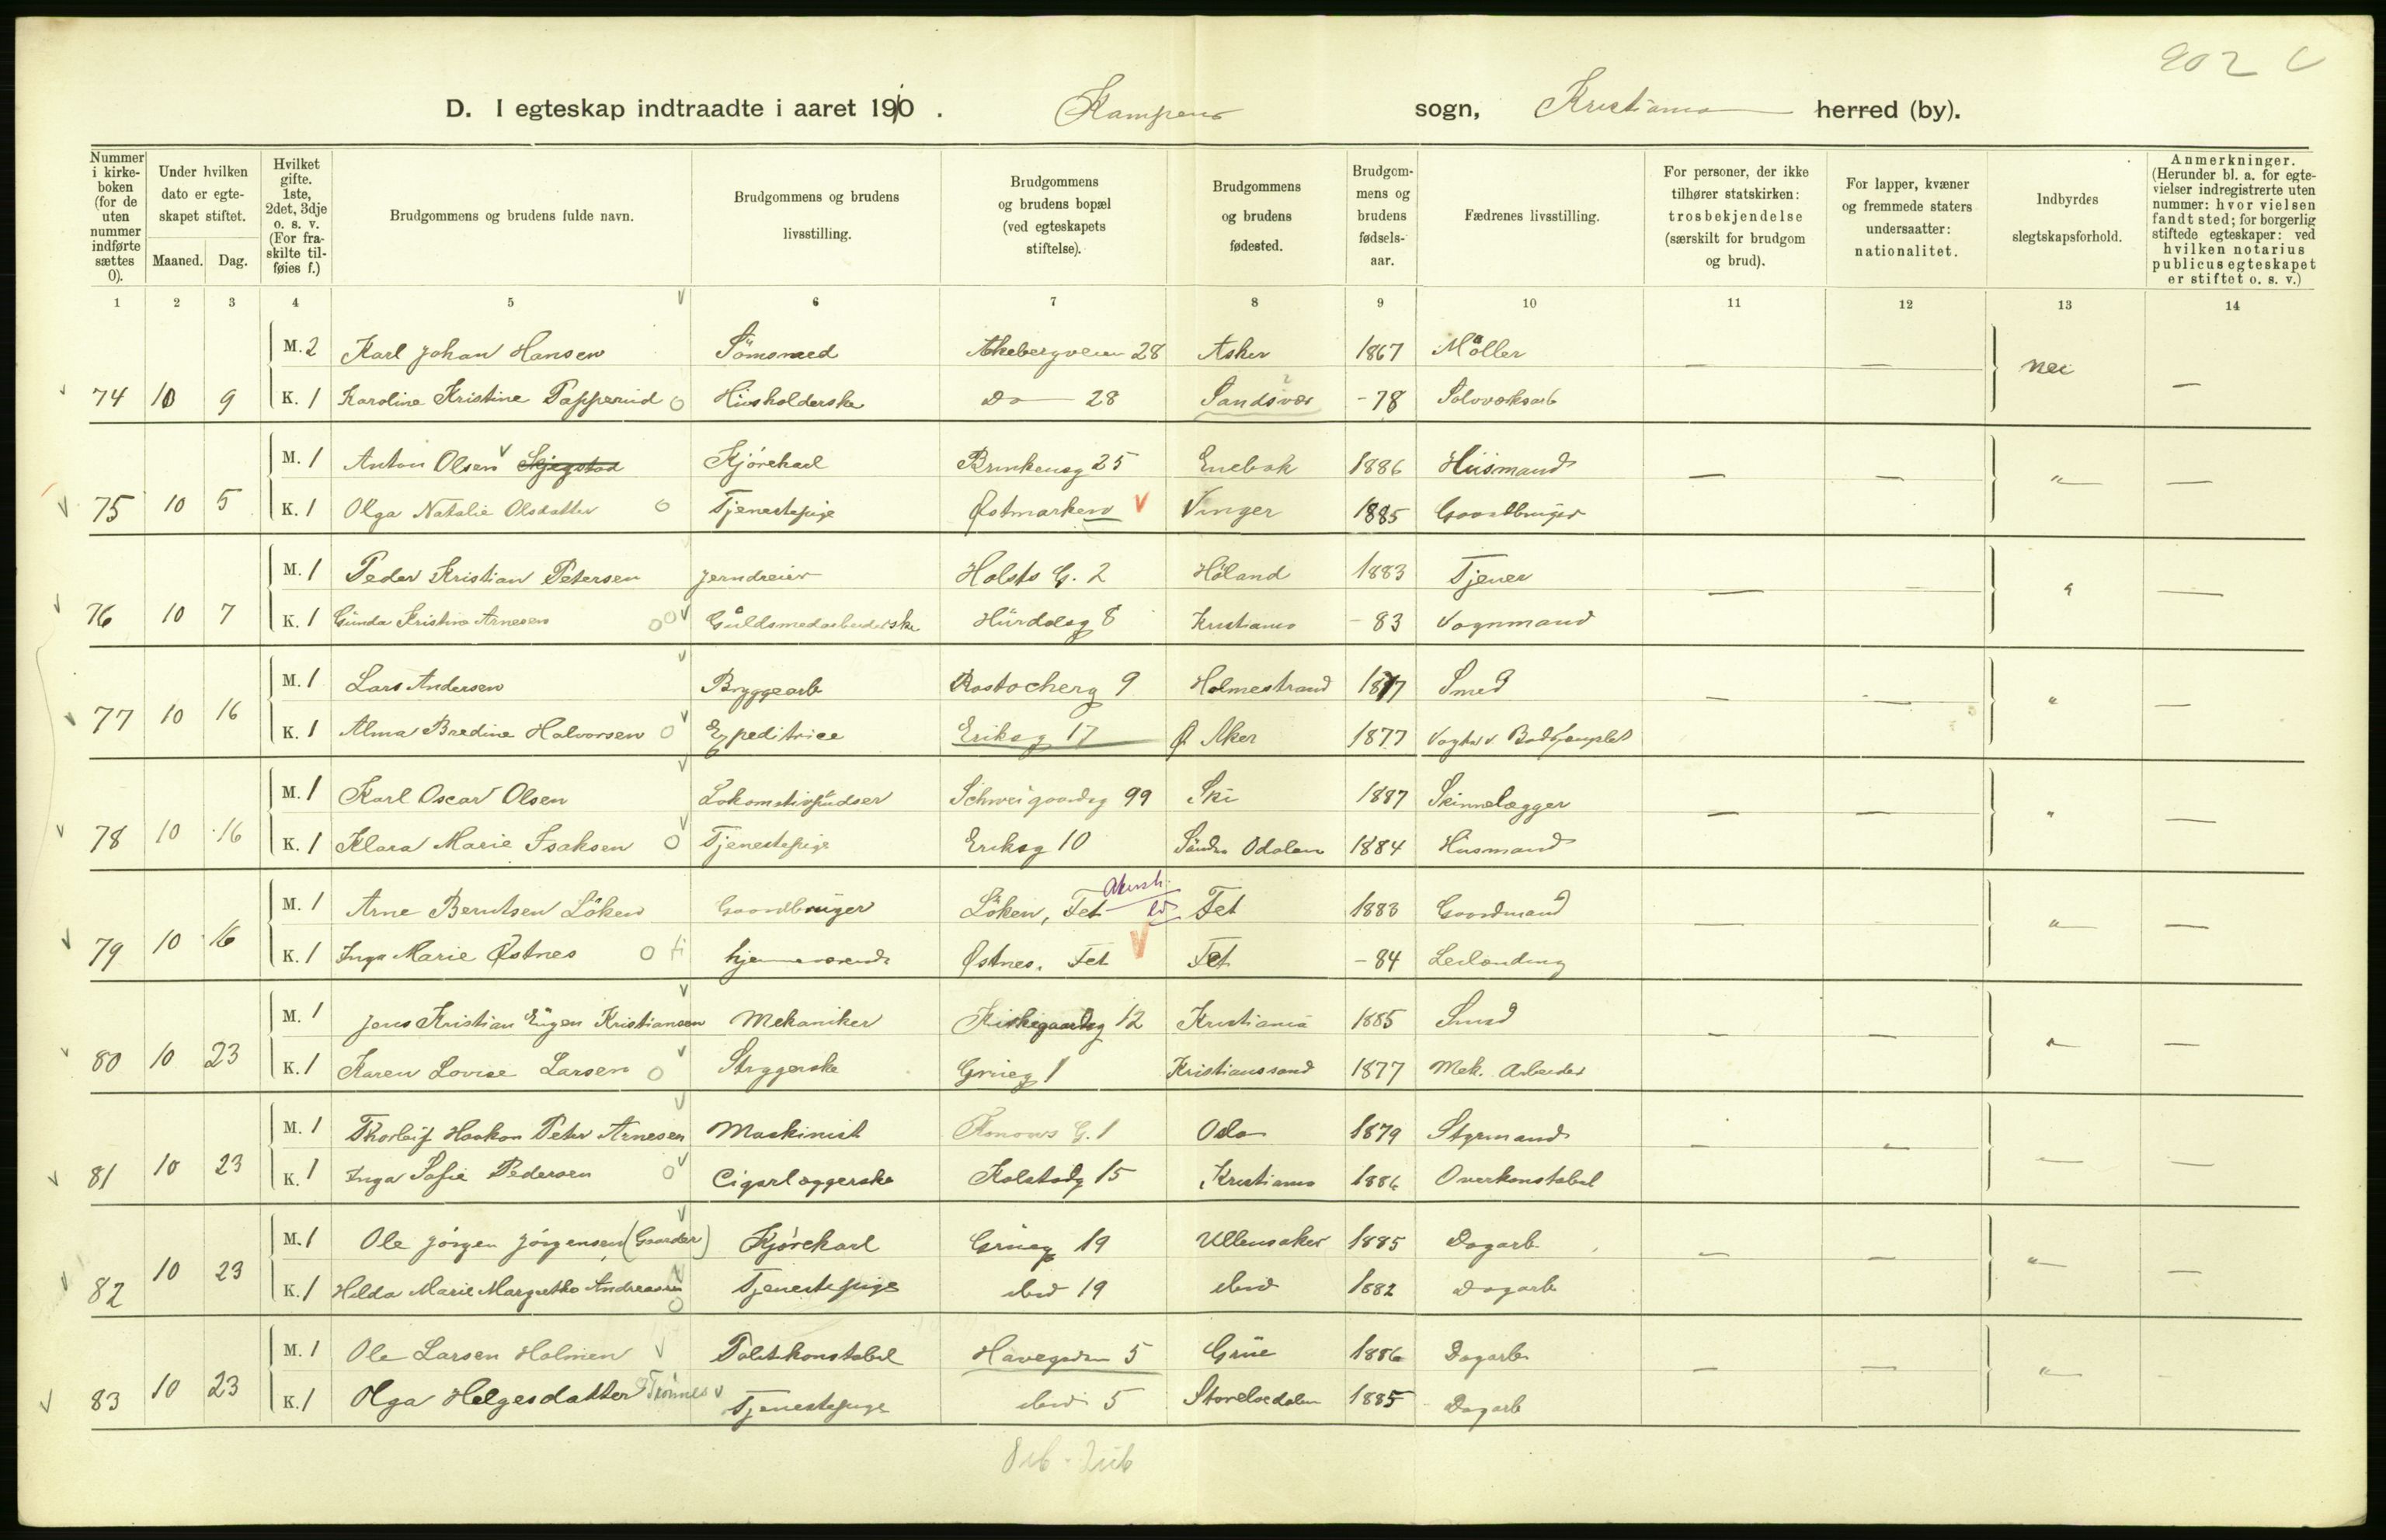 902 C
D. I egteskap indtraadte i aaret 1910. Kampens sogn, Kristiania herred (by).
Nummer i kirkeboken (for de uten nummer indførte sættes 0).
Under hvilken dato er egteskapet stiftet.
Maaned. Dag.
Hvilket gifte. 1ste, 2det, 3dje o. s. v. (For fraskilte tilføies f.)
Brudgommens og brudens fulde navn.
Brudgommens og brudens livsstilling.
Brudgommens og brudens bopæl (ved egteskapets stiftelse).
Brudgommens og brudens fødested.
Brudgommens og brudens fødselsaar.
Fædrenes livsstilling.
For personer, der ikke tilhører statskirken: trosbekjendelse (særskilt for brudgom og brud).
For lapper, kvæner og fremmede staters undersaatter: nationalitet.
Indbyrdes slegtskapsforhold.
Anmerkninger. (Herunder bl. a. for egtevielser indregistrerte uten nummer: hvor vielsen fandt sted; for borgerlig stiftede egteskaper: ved hvilken notarius publicus egteskapet er stiftet o. s. v.)
1 2 3 4 5 6 7 8 9 10 11 12 13 14
M. 2 Karl Johan Hansen Sömsmed Akebergveien 28 Asker 1867 Möller — — nei
74 10 9 K. 1 Karoline Kristine Papperud Husholderske Do 28 Sandsvær -78 Sølvverksarb —
M. 1 Anton Olsen Skjegstad Kjørekarl Brinkensg 25 Enebak 1886 Husmand — — "
75 10 5 K. 1 Olga Natalie Olsdatter Tjenestepige Østmarken Vinger 1885 Gaardbruger —
M. 1 Peder Kristian Petersen Jerndreier Holsts G. 2 Höland 1883 Tjener — — "
76 10 7 K. 1 Gunda Kristine Arnesen Guldsmedarbeiderske Hurdalsg 8 Kristiania -83 Vognmand —
M. 1 Lars Andersen Bryggearb Rostocherg 9 Holmestrand 1877 Smed — — "
77 10 16 K. 1 Alma Bredine Halvorsen Expeditrice Eriksg 17 Ø Aker 1877 —
M. 1 Karl Oscar Olsen Lokomotivpudser Schweigaardsg 99 Ski 1887 Skinnelægger — — "
78 10 16 K. 1 Klara Marie Isaksen Tjenestepige Eriksg 10 Söndre Odalen 1884 Husmand —
M. 1 Arne Berntsen Löken Gaardbruger Löken, Fet Akersh. Fet 1883 Gaardmand — — "
79 10 16 K. 1 Inga Marie Østnes hjemmeværende Østnes. Fet Fet -84 Leilending —
M. 1 Jens Kristian Eugen Kristiansen Mekaniker Kirkegaardsg 12 Kristiania 1885 Smed — — "
80 10 23 K. 1 Karen Lovise Larsen Strygerske Grüneg 1 Kristianssand 1877 Mek. Arbeider —
M. 1 Thorleif Haakon Peter Arnesen Maskinist Konows G. 1 Oslo 1879 Styrmand — — "
81 10 23 K. 1 Inga Sofie Pedersen Cigarlæggerske Kolstadg 15 Kristiania 1886 Overkonstabel —
M. 1 Ole Jörgen Jörgensen (Gaarder) Kjørekarl Grüneg 19 Ullensaker 1885 Dagarb — — "
82 10 23 K. 1 Hilda Marie Margrethe Andreasen Tjenestepige ibid 19 ibid 1882 Dagarb —
M. 1 Ole Larsen Holmen Politikonstabel Havegaden 5 Grue 1886 Dagarb — — "
83 10 23 K. 1 Olga Helgesdatter Trönnes Tjenestepige ibid 5 Storelvedalen 1885 Dagarb